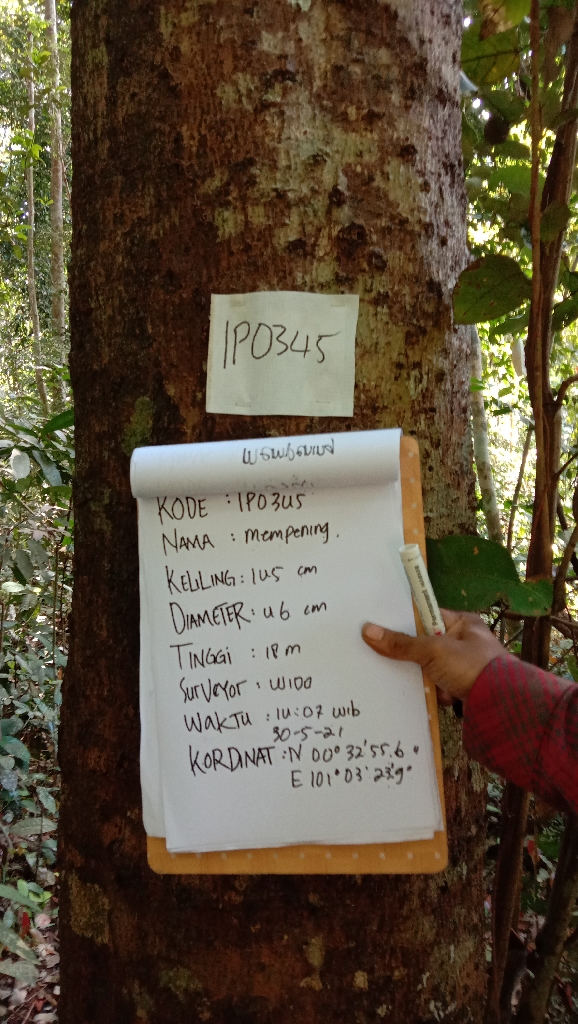 IPO345
KODE : IPO345
NAMA : mempening.
KELILING : 145 cm
DIAMETER : 46 cm
TINGGI : 18 m
SurVeyor : WIDO
WAKTU : 14:07 wib
30-5-21
KORDINAT : N 00° 32' 55.6"
E 101° 03' 23.9"